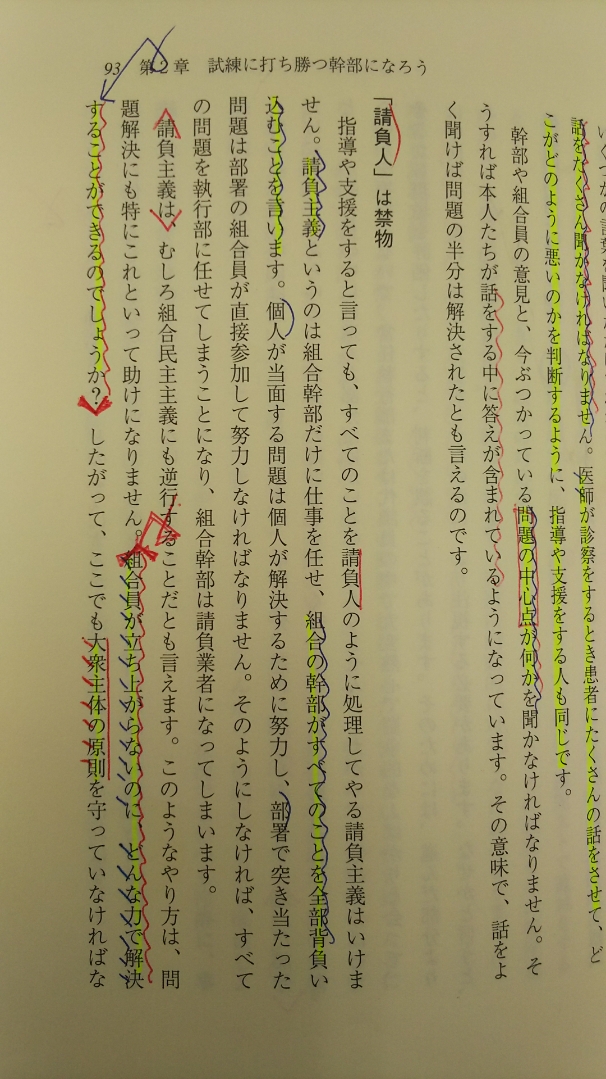 93　第2章　試練に打ち勝つ幹部になろう
いくつかの言葉を
話をたくさん聞かなければなりません。医師が診察をするとき患者にたくさんの話をさせて、ど
こがどのように悪いのかを判断するように、指導や支援をする人も同じです。
幹部や組合員の意見と、今ぶつかっている問題の中心点が何かを聞かなければなりません。そ
うすれば本人たちが話をする中に答えが含まれているようになっています。その意味で、話をよ
く聞けば問題の半分は解決されたとも言えるのです。
「請負人」は禁物
指導や支援をすると言っても、すべてのことを請負人のように処理してやる請負主義はいけま
せん。請負主義というのは組合幹部だけに仕事を任せ、組合の幹部がすべてのことを全部背負い
込むことを言います。個人が当面する問題は個人が解決するために努力し、部署で突き当たった
問題は部署の組合員が直接参加して努力しなければなりません。そのようにしなければ、すべて
の問題を執行部に任せてしまうことになり、組合幹部は請負業者になってしまいます。
請負主義は、むしろ組合民主主義にも逆行することだとも言えます。このようなやり方は、問
題解決にも特にこれといって助けになりません。組合員が立ち上がらないのに、どんな力で解決
することができるのでしょうか？　したがって、ここでも大衆主体の原則を守っていなければな